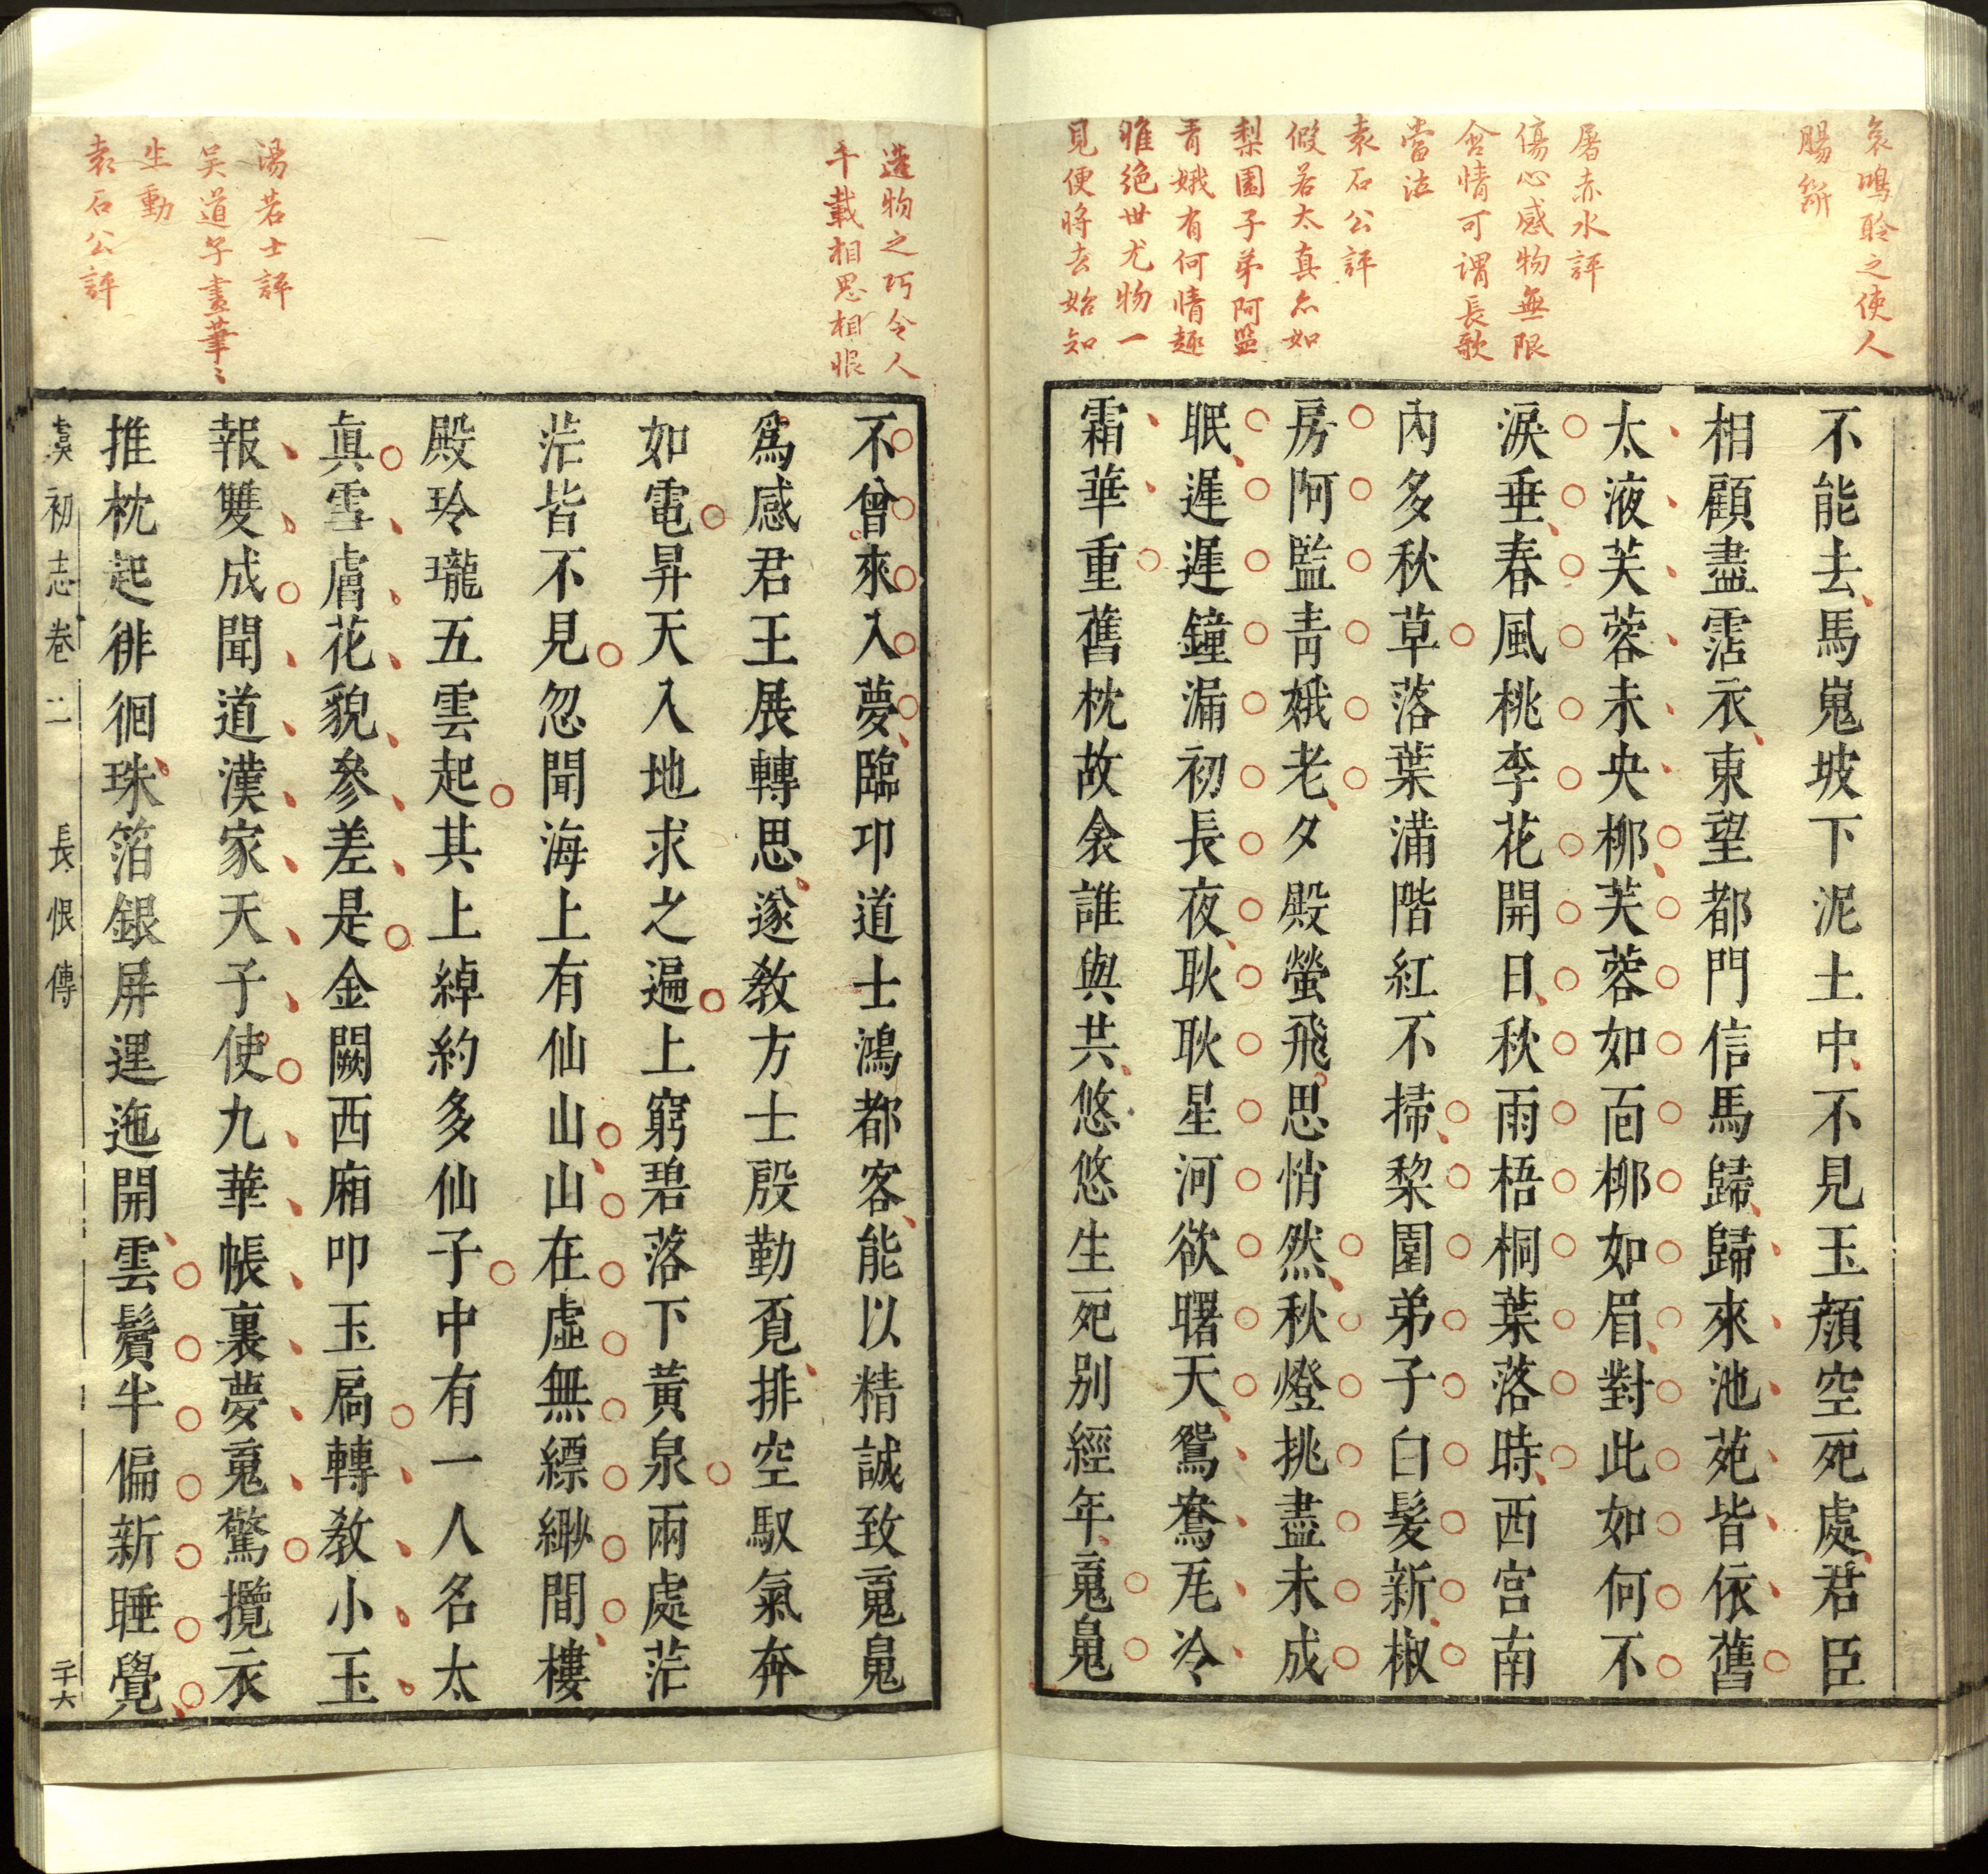 哀鳴聆之使人
腸斷
屠赤水評
傷心感物無限
含情可謂長歌
當泣
袁石公評
假若太真亦如
梨園子弟阿監
青娥有何情趣
惟絕世尤物一
見便將去始知
不能去馬嵬坡下泥土中不見玉顏空死處君臣
相顧盡霑衣東望都門信馬歸歸來池苑皆依舊
太液芙蓉未央柳芙蓉如面柳如眉對此如何不
淚垂春風桃李花開日秋雨梧桐葉落時西宮南
內多秋草落葉滿階紅不掃梨園弟子白髮新椒
房阿監青娥老夕殿螢飛思悄然秋燈挑盡未成
眠遲遲鐘漏初長夜耿耿星河欲曙天鴛鴦瓦冷
霜華重舊枕故衾誰與共悠悠生死別經年䰟䰟
造物之巧令人
千載相思相恨
湯若士評
吳道子畫筆筆〻
生動
袁石公評
不曾來入夢臨邛道士鴻都客能以精誠致䰟䰟
爲感君王展轉思遂教方士殷勤覓排空馭氣奔
如電昇天入地求之遍上窮碧落下黃泉兩處茫
茫皆不見忽聞海上有仙山山在虛無縹緲間樓
殿玲瓏五雲起其上綽約多仙子中有一人名太
真雪膚花貌參差是金闕西廂叩玉扃轉教小玉
報雙成聞道漢家天子使九華帳裏夢䰟驚攬衣
推枕起徘徊珠箔銀屏邐迤開雲鬢半偏新睡覺
虞初志卷二 長恨傳 二十六